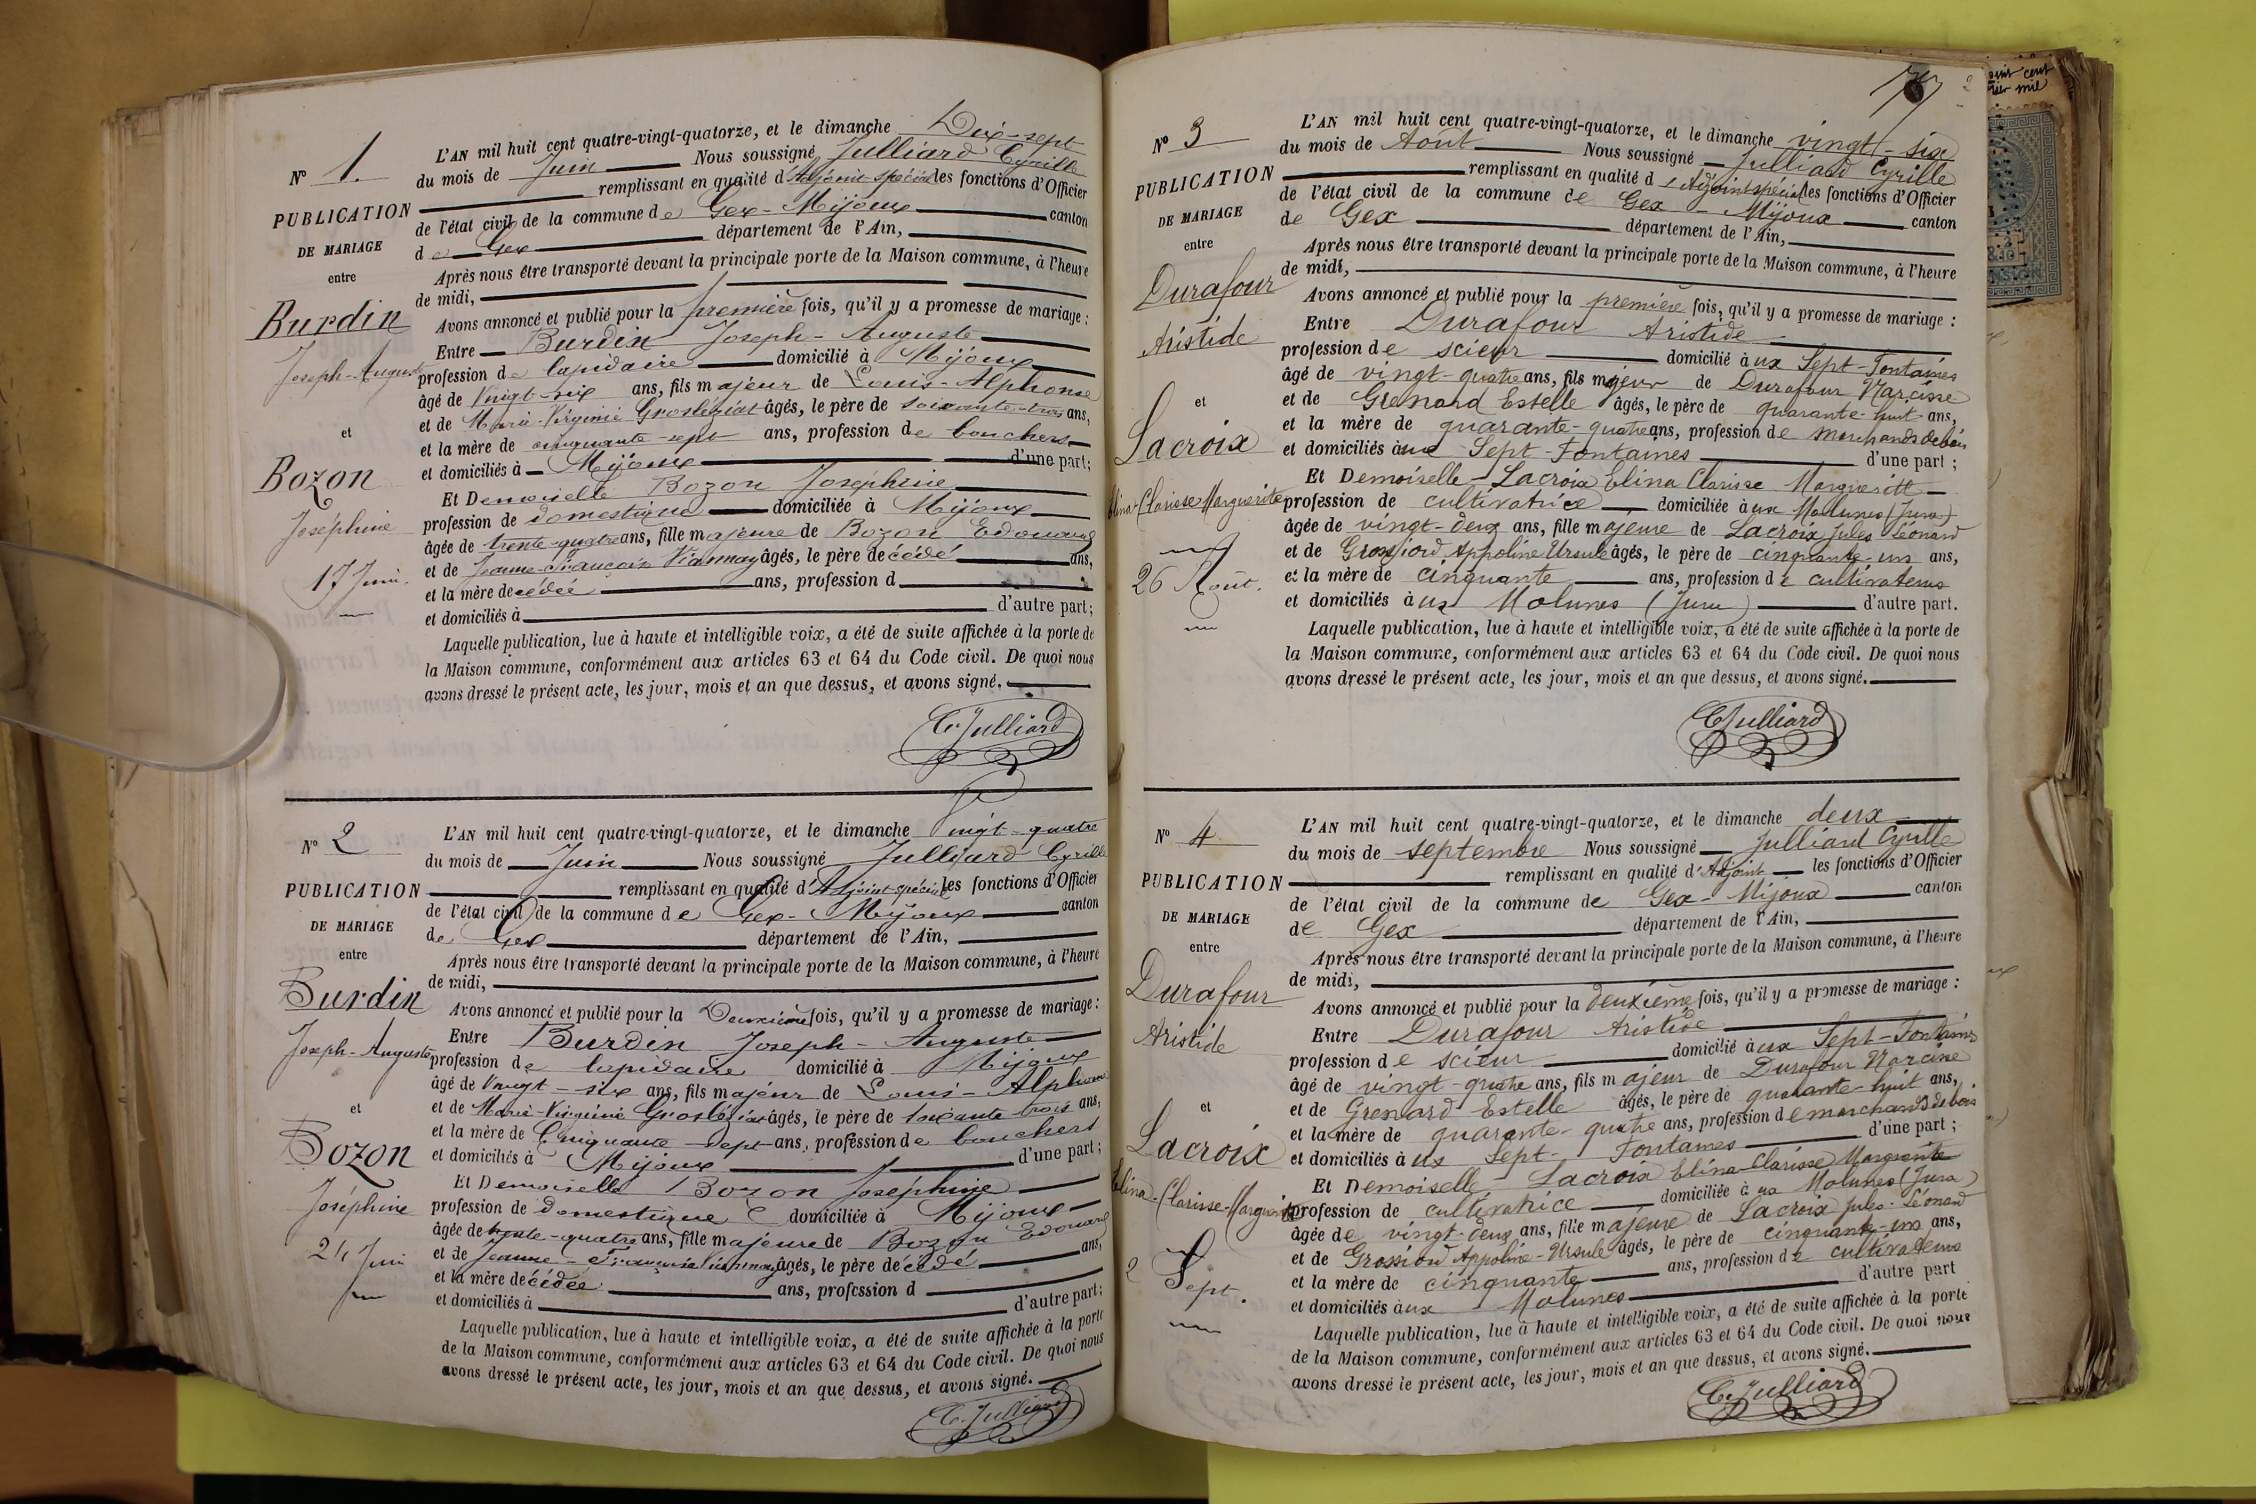 N° 1.
PUBLICATION
DE MARIAGE
entre
Burdin
Joseph-Auguste
et
Bozon
Joséphine
17 Juin.
L'AN mil huit cent quatre-vingt-quatorze, et le dimanche Dix-sept
du mois de Juin Nous soussigné Julliard Cyrille
remplissant en qualité d'Adjoint spécial les fonctions d'Officier
de l'état civil de la commune de Gex-Mijoux canton
de Gex département de l'Ain,
Après nous être transporté devant la principale porte de la Maison commune, à l'heure
de midi,
Avons annoncé et publié pour la première fois, qu'il y a promesse de mariage :
Entre Burdin Joseph-Auguste
profession de lapidaire domicilié à Mijoux
âgé de Vingt-six ans, fils majeur de Louis-Alphonse
et de Marie-Virginie Grosléziat âgés, le père de soixante-trois ans,
et la mère de cinquante-sept ans, profession de bouchers
et domiciliés à Mijoux d'une part;
Et Demoiselle Bozon Joséphine
profession de domestique domiciliée à Mijoux
âgée de trente-quatre ans, fille majeure de Bozon Edouard
et de Jeanne-Françoise âgés, le père décédé ans,
et la mère décédée ans, profession d
et domiciliés à d'autre part;
Laquelle publication, lue à haute et intelligible voix, a été de suite affichée à la porte de
la Maison commune, conformément aux articles 63 et 64 du Code civil. De quoi nous
avons dressé le présent acte, les jour, mois et an que dessus, et avons signé.
C. Julliard
N° 2
PUBLICATION
DE MARIAGE
entre
Burdin
Joseph-Auguste
et
Bozon
Joséphine
24 Juin
L'AN mil huit cent quatre-vingt-quatorze, et le dimanche Vingt-quatre
du mois de Juin Nous soussigné Julliard Cyrille
remplissant en qualité d'Adjoint spécial les fonctions d'Officier
de l'état civil de la commune de Gex-Mijoux canton
de Gex département de l'Ain,
Après nous être transporté devant la principale porte de la Maison commune, à l'heure
de midi,
Avons annoncé et publié pour la Deuxième fois, qu'il y a promesse de mariage :
Entre Burdin Joseph-Auguste
profession de lapidaire domicilié à Mijoux
âgé de Vingt-six ans, fils majeur de Louis-Alphonse
et de Marie-Virginie Grosléziat âgés, le père de soixante trois ans,
et la mère de Cinquante-sept ans, profession de bouchers
et domiciliés à Mijoux d'une part;
Et Demoiselle Bozon Joséphine
profession de domestique domiciliée à Mijoux
âgée de trente-quatre ans, fille majeure de Bozon Edouard
et de Jeanne-Françoise âgés, le père décédé ans,
et la mère décédée ans, profession d
et domiciliés à d'autre part;
Laquelle publication, lue à haute et intelligible voix, a été de suite affichée à la porte
de la Maison commune, conformément aux articles 63 et 64 du Code civil. De quoi nous
avons dressé le présent acte, les jour, mois et an que dessus, et avons signé.
C. Julliard
N° 3
PUBLICATION
DE MARIAGE
entre
Durafour
Aristide
et
Lacroix
Elina-Clarisse Marguerite
26 Août.
L'AN mil huit cent quatre-vingt-quatorze, et le dimanche vingt-six
du mois de Août Nous soussigné Julliard Cyrille
remplissant en qualité d'Adjoint spécial les fonctions d'Officier
de l'état civil de la commune de Gex-Mijoux canton
de Gex département de l'Ain,
Après nous être transporté devant la principale porte de la Maison commune, à l'heure
de midi,
Avons annoncé et publié pour la première fois, qu'il y a promesse de mariage :
Entre Durafour Aristide
profession de scieur domicilié aux Sept-Fontaines
âgé de vingt-quatre ans, fils majeur de Durafour Narcisse
et de Grenard Estelle âgés, le père de quarante-huit ans,
et la mère de quarante-quatre ans, profession de marchands de bois
et domiciliés aux Sept-Fontaines d'une part ;
Et Demoiselle Lacroix Elina Clarisse Marguerite
profession de cultivatrice domiciliée aux Molunes (Jura)
âgée de vingt-deux ans, fille majeure de Lacroix Jules Léonard
et de Grossiord Appoline Ursule âgés, le père de cinquante-un ans,
et la mère de cinquante ans, profession de cultivateurs
et domiciliés aux Molunes (Jura) d'autre part.
Laquelle publication, lue à haute et intelligible voix, a été de suite affichée à la porte de
la Maison commune, conformément aux articles 63 et 64 du Code civil. De quoi nous
avons dressé le présent acte, les jour, mois et an que dessus, et avons signé.
C. Julliard
N° 4
PUBLICATION
DE MARIAGE
entre
Durafour
Aristide
et
Lacroix
Elina-Clarisse-Marguerite
2 Sept.
L'AN mil huit cent quatre-vingt-quatorze, et le dimanche deux
du mois de septembre Nous soussigné Julliard Cyrille
remplissant en qualité d'Adjoint les fonctions d'Officier
de l'état civil de la commune de Gex-Mijoux canton
de Gex département de l'Ain,
Après nous être transporté devant la principale porte de la Maison commune, à l'heure
de midi,
Avons annoncé et publié pour la deuxième fois, qu'il y a promesse de mariage :
Entre Durafour Aristide
profession de scieur domicilié aux Sept-Fontaines
âgé de vingt-quatre ans, fils majeur de Durafour Narcisse
et de Grenard Estelle âgés, le père de quarante-huit ans,
et la mère de quarante-quatre ans, profession de marchands de bois
et domiciliés aux Sept-Fontaines d'une part ;
Et Demoiselle Lacroix Elina-Clarisse Marguerite
profession de cultivatrice domiciliée aux Molunes (Jura)
âgée de vingt-deux ans, fille majeure de Lacroix Jules-Léonard
et de Grossiord Appoline-Ursule âgés, le père de cinquante-un ans,
et la mère de cinquante ans, profession de cultivateurs
et domiciliés aux Molunes d'autre part
Laquelle publication, lue à haute et intelligible voix, a été de suite affichée à la porte
de la Maison commune, conformément aux articles 63 et 64 du Code civil. De quoi nous
avons dressé le présent acte, les jour, mois et an que dessus, et avons signé.
C. Julliard